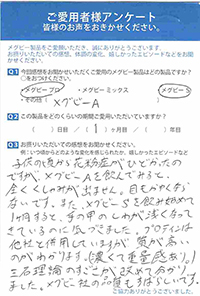 ご愛用者様アンケート
皆様の声をお聞かせください。
メグビー製品をご愛顧いただき、誠にありがとうございます。
Q1 今回感想をお聞かせいただくご愛用のメグビー製品はどの製品ですか
○をつけください。
メグビープロ ・メグビーミックス メグビーS
・その他( メグビーA
Q2 この製品をどのくらいの期間ご愛用いただいていますか?
( )日目 / ( 1 )ヶ月目 / ( )年目
Q3 お使いいただいての感想をお聞かせください。
子供の頃から花粉症がひどかったの
ですが、メグビーAを飲んでみると、
全くくしゃみが出ません。目もかゆくな
ないです。また、メグビーSを飲み始めて
1ヶ月すると、手の甲のしわが浅くなって
きているのに気づきました。プロテインは
他社と併用していますが質が高い
のがわかります。(濃くて重量感あり。)
三石理論のすごさが改めて分かり
ました。メグビー社の品質もすばらしいです。
ご協力ありがとうございました。